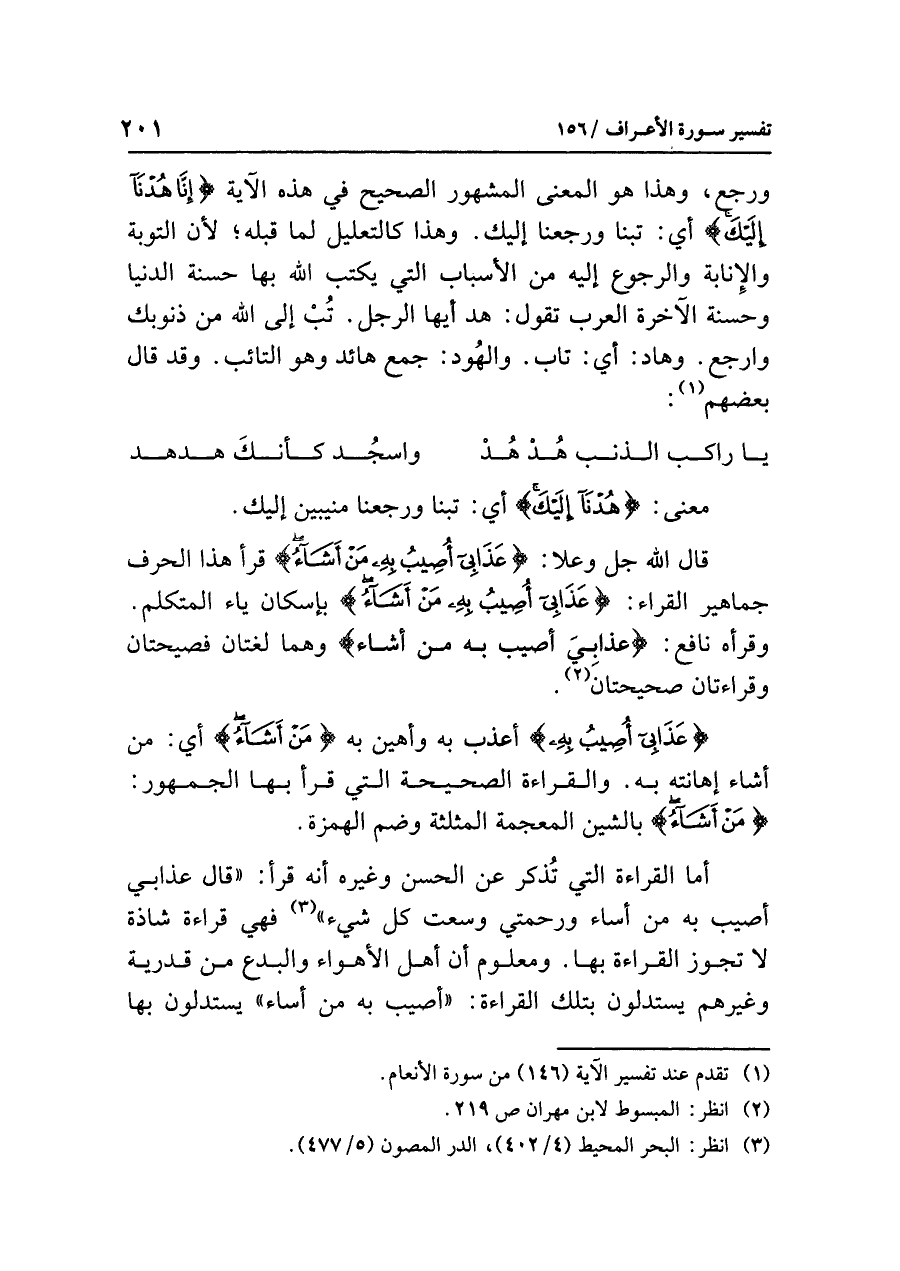 تفسير سورة الأعراف / ١٥٦ ٢٠١
ورجع، وهذا هو المعنى المشهور الصحيح في هذه الآية ﴿إِنَّا هُدْنَآ
إِلَيْكَۚ﴾ أي: تبنا ورجعنا إليك. وهذا كالتعليل لما قبله؛ لأن التوبة
والإنابة والرجوع إليه من الأسباب التي يكتب الله بها حسنة الدنيا
وحسنة الآخرة العرب تقول: هد أيها الرجل. تُبْ إلى الله من ذنوبك
وارجع. وهاد: أي: تاب. والهُود: جمع هائد وهو التائب. وقد قال
بعضهم(١):
يا راكب الذنب هُدْ هُدْ واسجُد كأنكَ هدهد
معنى: ﴿هُدْنَآ إِلَيْكَۚ﴾ أي: تبنا ورجعنا منيبين إليك.
قال الله جل وعلا: ﴿عَذَابِىٓ أُصِيبُ بِهِۦ مَنْ أَشَآءُۖ﴾ قرأ هذا الحرف
جماهير القراء: ﴿عَذَابِىٓ أُصِيبُ بِهِۦ مَنْ أَشَآءُۖ﴾ بإسكان ياء المتكلم.
وقرأه نافع: ﴿عذابِيَ أصيب به من أشاء﴾ وهما لغتان فصيحتان
وقراءتان صحيحتان(٢).
﴿عَذَابِىٓ أُصِيبُ بِهِۦ﴾ أعذب به وأهين به ﴿مَنْ أَشَآءُۖ﴾ أي: من
أشاء إهانته به. والقراءة الصحيحة التي قرأ بها الجمهور:
﴿مَنْ أَشَآءُۖ﴾ بالشين المعجمة المثلثة وضم الهمزة.
أما القراءة التي تُذكر عن الحسن وغيره أنه قرأ: «قال عذابي
أصيب به من أساء ورحمتي وسعت كل شيء»(٣) فهي قراءة شاذة
لا تجوز القراءة بها. ومعلوم أن أهل الأهواء والبدع من قدرية
وغيرهم يستدلون بتلك القراءة: «أصيب به من أساء» يستدلون بها
(١) تقدم عند تفسير الآية (١٤٦) من سورة الأنعام.
(٢) انظر: المبسوط لابن مهران ص ٢١٩.
(٣) انظر: البحر المحيط (٤/ ٤٠٢)، الدر المصون (٥/ ٤٧٧).